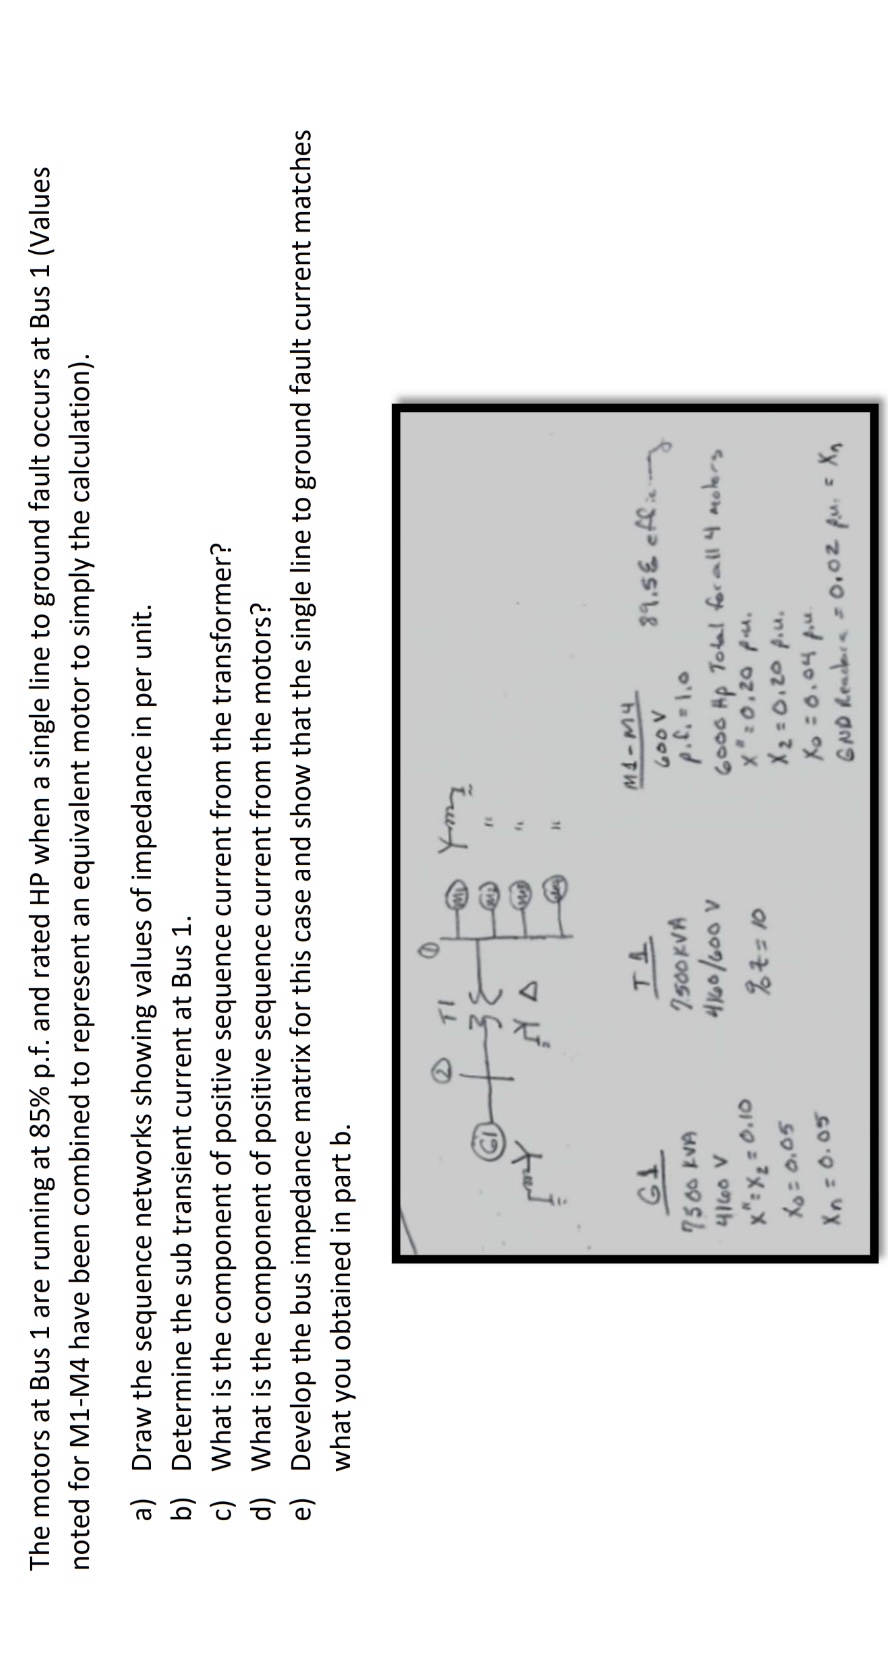 The motors at Bus 1 are running at 85% p.f. and rated HP when a single line to ground fault occurs at Bus 1 (Values
noted for M1-M4 have been combined to represent an equivalent motor to simply the calculation).
a) Draw the sequence networks showing values of impedance in per unit.
b) Determine the sub transient current at Bus 1.
c) What is the component of positive sequence current from the transformer?
d) What is the component of positive sequence current from the motors?
e) Develop the bus impedance matrix for this case and show that the single line to ground fault current matches
what you obtained in part b.
② T1 ①
G1
M1
M2
M3
M4
Y
"
"
"
Y
Y Δ
G1
7500 KVA
4160 V
X" = X2 = 0.10
X0 = 0.05
Xn = 0.05
T1
7500 KVA
4160/600 V
% Z = 10
M1-M4
600V 89.5% efficiency
p.f. = 1.0
6000 Hp Total for all 4 motors
X" = 0.20 p.u.
X2 = 0.20 p.u.
X0 = 0.04 p.u.
GND Reactance = 0.02 p.u. = Xn